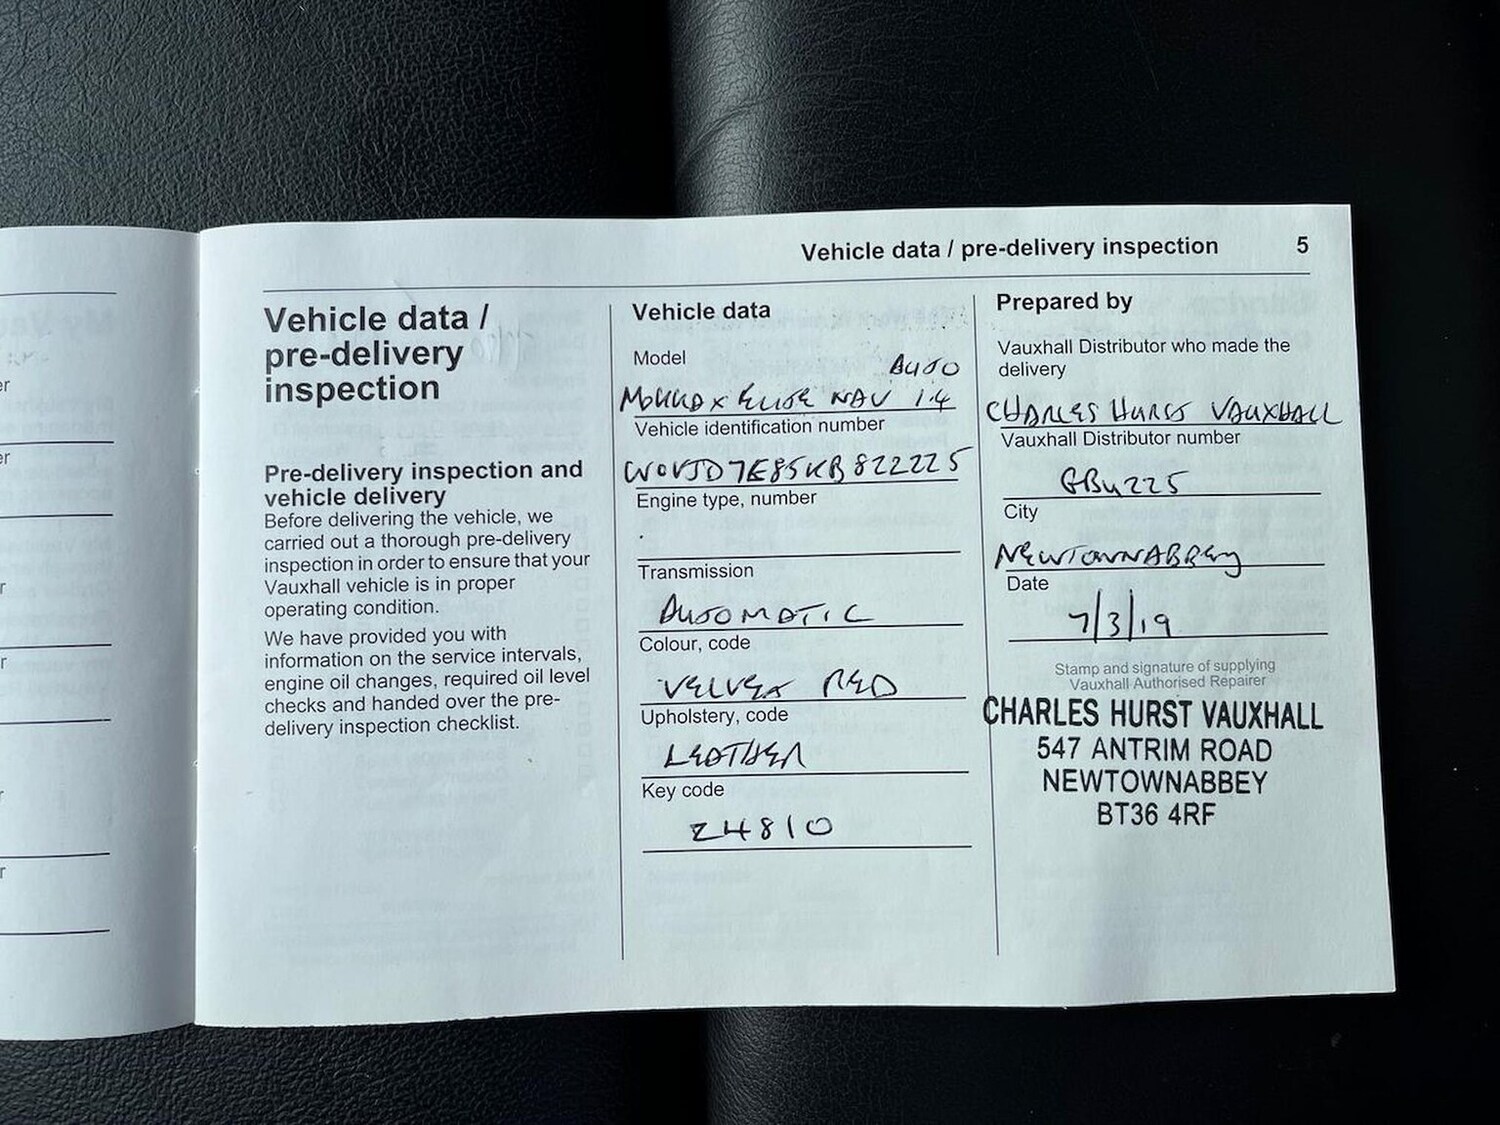 Vehicle data / pre-delivery inspection 5
Vehicle data /
pre-delivery
inspection
Pre-delivery inspection and
vehicle delivery
Before delivering the vehicle, we
carried out a thorough pre-delivery
inspection in order to ensure that your
Vauxhall vehicle is in proper
operating condition.
We have provided you with
information on the service intervals,
engine oil changes, required oil level
checks and handed over the pre-
delivery inspection checklist.
Vehicle data
Model
AUTO
MOKKA X ELITE NAV 1.4
Vehicle identification number
W0VJD7E85KB822225
Engine type, number
Transmission
AUTOMATIC
Colour, code
VELVET RED
Upholstery, code
LEATHER
Key code
Z4810
Prepared by
Vauxhall Distributor who made the
delivery
CHARLES HURST VAUXHALL
Vauxhall Distributor number
GB4225
City
NEWTOWNABBEY
Date
7/3/19
Stamp and signature of supplying
Vauxhall Authorised Repairer
CHARLES HURST VAUXHALL
547 ANTRIM ROAD
NEWTOWNABBEY
BT36 4RF